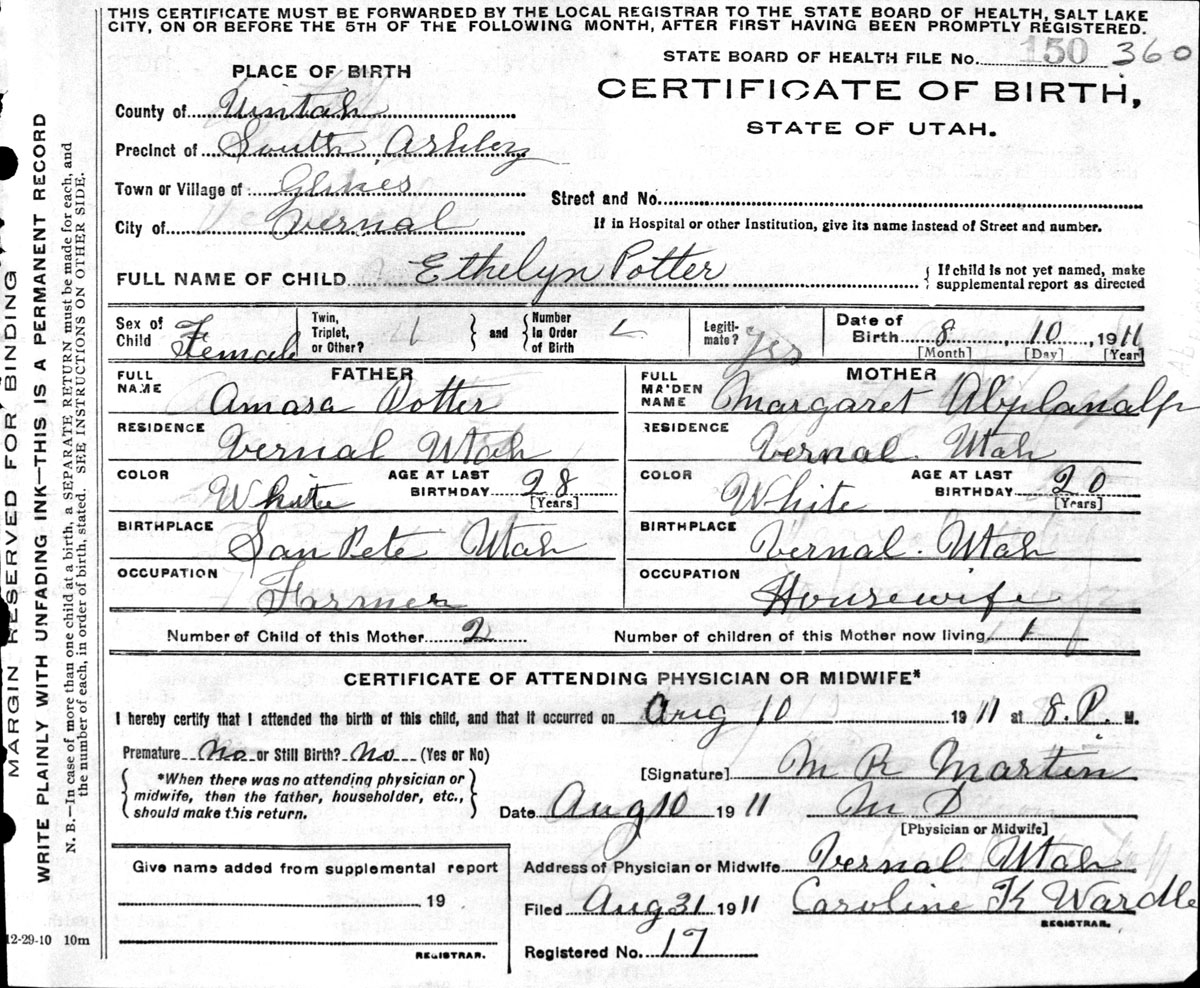 THIS CERTIFICATE MUST BE FORWARDED BY THE LOCAL REGISTRAR TO THE STATE BOARD OF HEALTH, SALT LAKE
CITY, ON OR BEFORE THE 5TH OF THE FOLLOWING MONTH, AFTER FIRST HAVING BEEN PROMPTLY REGISTERED.
STATE BOARD OF HEALTH FILE No. 150 360
PLACE OF BIRTH
CERTIFICATE OF BIRTH,
STATE OF UTAH.
County of Uintah
Precinct of South Ashley
Town or Village of
Street and No.
City of Vernal
If in Hospital or other Institution, give its name instead of Street and number.
FULL NAME OF CHILD Ethelyn Potter { If child is not yet named, make
supplemental report as directed
Sex of Child Female Twin, Triplet, or Other? } and { Number In Order of Birth Legiti-mate? yes Date of Birth 8, 10, 1911
[Month] [Day] [Year]
FATHER MOTHER
FULL NAME Amasa Potter FULL MAIDEN NAME Margaret Abplanalp
RESIDENCE Vernal Utah RESIDENCE Vernal. Utah
COLOR White AGE AT LAST BIRTHDAY 28 [Years] COLOR White AGE AT LAST BIRTHDAY 20 [Years]
BIRTHPLACE San Pete Utah BIRTHPLACE Vernal. Utah
OCCUPATION Farmer OCCUPATION Housewife
Number of Child of this Mother 2 Number of children of this Mother now living 1
CERTIFICATE OF ATTENDING PHYSICIAN OR MIDWIFE*
I hereby certify that I attended the birth of this child, and that it occurred on Aug 10 1911 at 8.P. M.
Premature No or Still Birth? No (Yes or No)
{ *When there was no attending physician or
midwife, then the father, householder, etc.,
should make this return. }
[Signature] M R Martin
Date Aug 10 1911 M D
[Physician or Midwife]
Give name added from supplemental report
19
REGISTRAR.
Address of Physician or Midwife Vernal Utah
Filed Aug 31 1911 Caroline K Wardle
REGISTRAR.
Registered No. 17
12-29-10 10m
MARGIN RESERVED FOR BINDING
WRITE PLAINLY WITH UNFADING INK—THIS IS A PERMANENT RECORD
N. B.—In case of more than one child at a birth, a SEPARATE RETURN must be made for each, and
the number of each, in order of birth, stated. SEE INSTRUCTIONS ON OTHER SIDE.